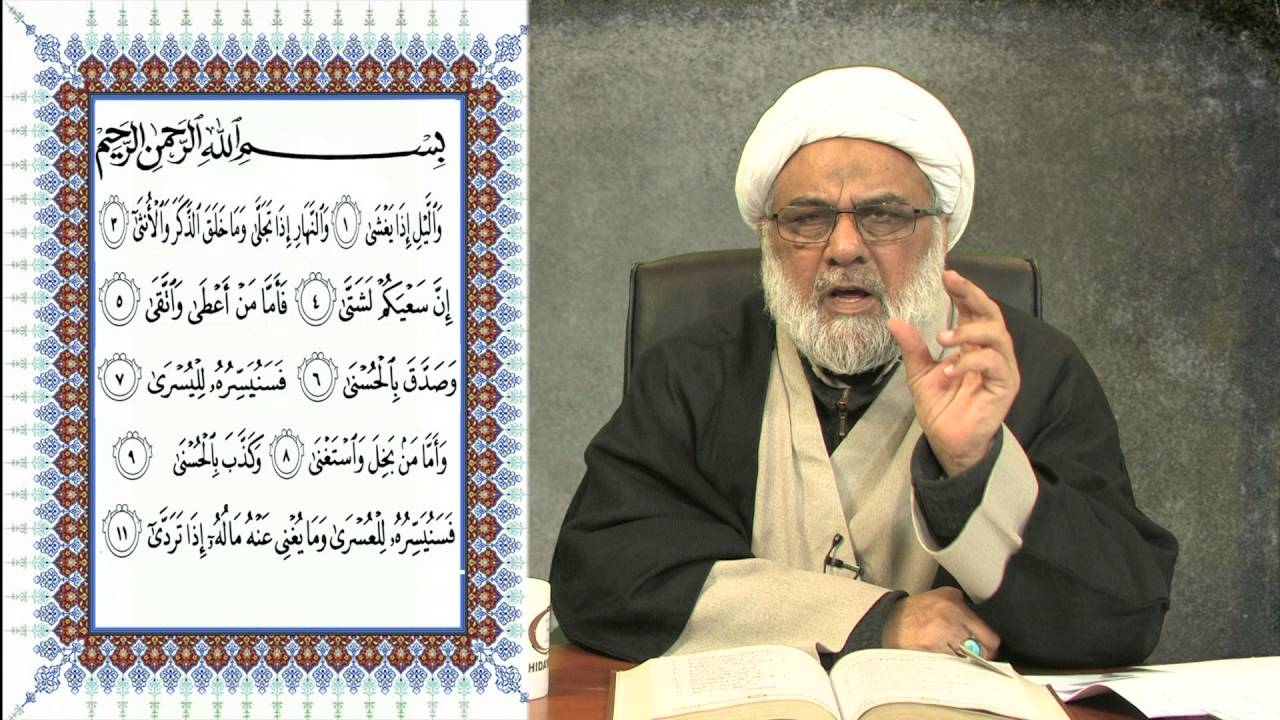 بِسْمِ ٱللَّهِ ٱلرَّحْمَٰنِ ٱلرَّحِيمِ
وَٱلَّيْلِ إِذَا يَغْشَىٰ ١ وَٱلنَّهَارِ إِذَا تَجَلَّىٰ وَمَا خَلَقَ ٱلذَّكَرَ وَٱلْأُنثَىٰٓ ٣
إِنَّ سَعْيَكُمْ لَشَتَّىٰ ٤ فَأَمَّا مَنْ أَعْطَىٰ وَٱتَّقَىٰ ٥
وَصَدَّقَ بِٱلْحُسْنَىٰ ٦ فَسَنُيَسِّرُهُۥ لِلْيُسْرَىٰ ٧
وَأَمَّا مَنۢ بَخِلَ وَٱسْتَغْنَىٰ ٨ وَكَذَّبَ بِٱلْحُسْنَىٰ ٩
فَسَنُيَسِّرُهُۥ لِلْعُسْرَىٰ وَمَا يُغْنِى عَنْهُ مَالُهُۥٓ إِذَا تَرَدَّىٰٓ ١١